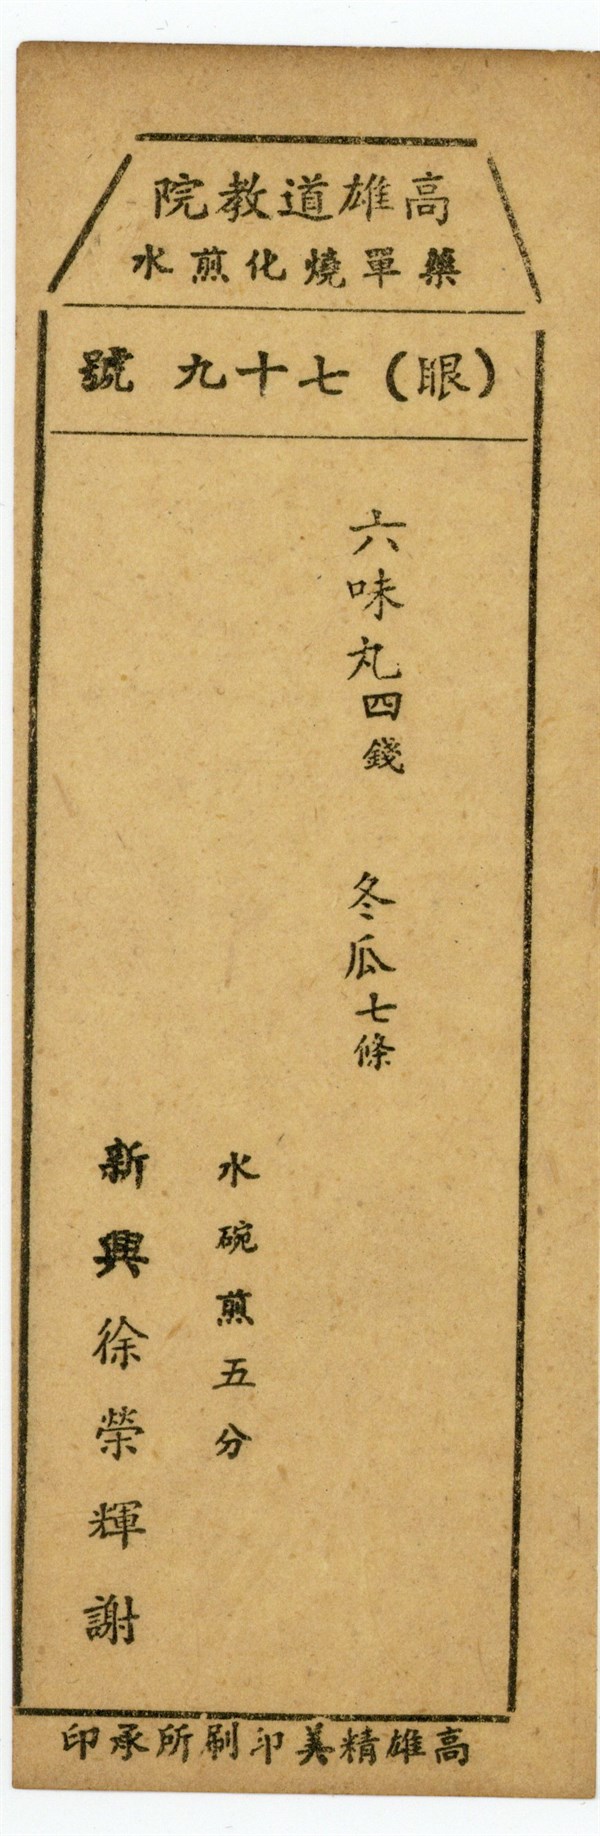 高雄道教院
藥單燒化煎水
（眼）七十九號
六味丸四錢　冬瓜七條
水碗煎五分
新興徐榮輝謝
高雄精美印刷所承印